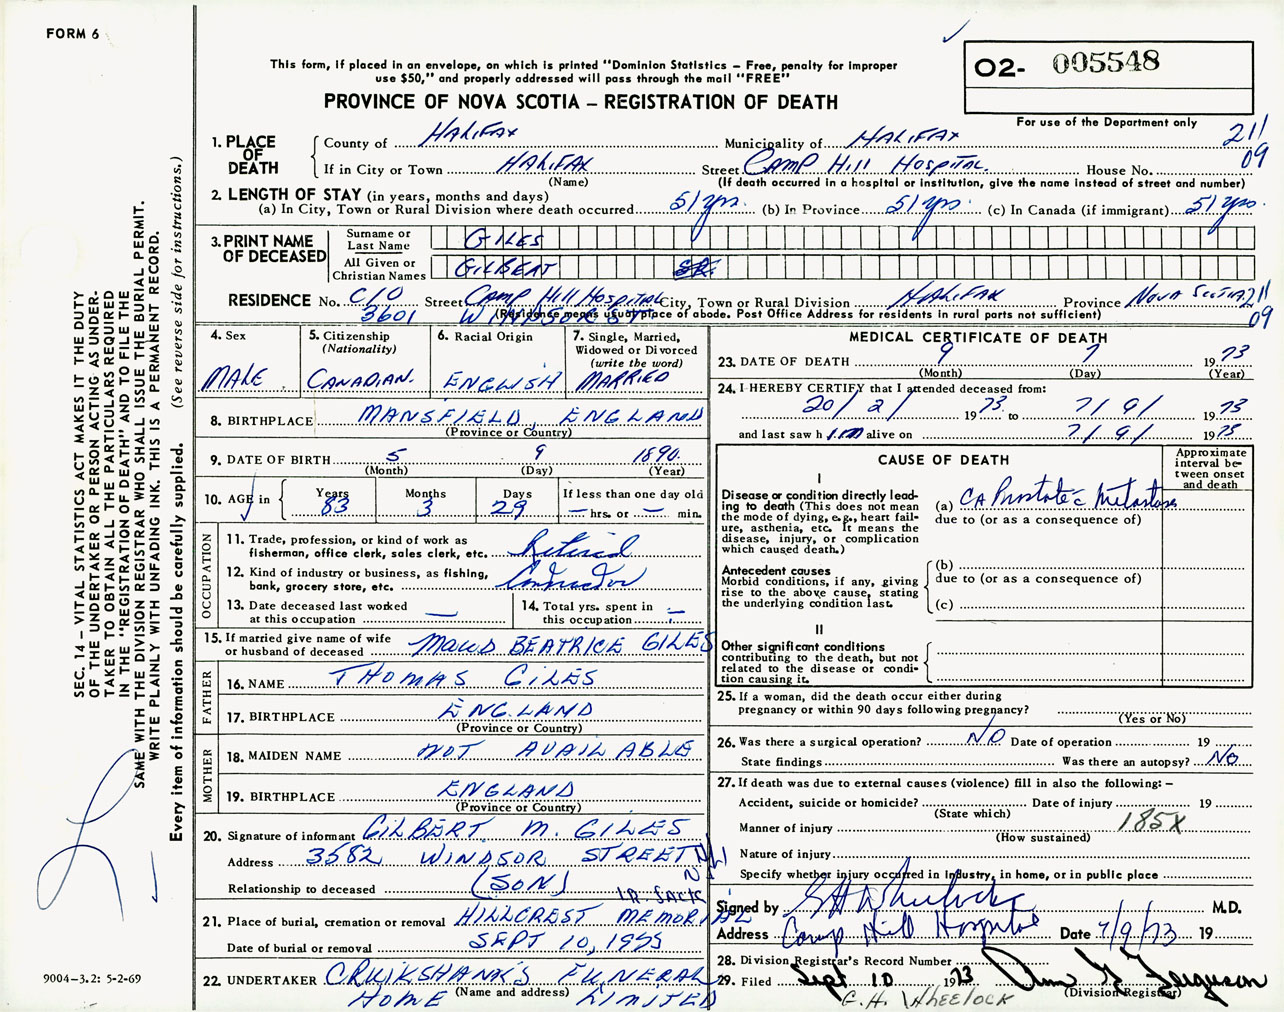 FORM 6
This form, if placed in an envelope, on which is printed "Dominion Statistics – Free, penalty for improper
use $50," and properly addressed will pass through the mail "FREE"
PROVINCE OF NOVA SCOTIA – REGISTRATION OF DEATH
O2- 005548
For use of the Department only
211
09
1. PLACE OF DEATH
County of HALIFAX Municipality of HALIFAX
If in City or Town HALIFAX Street CAMP HILL HOSPITAL. House No.
(Name) (If death occurred in a hospital or institution, give the name instead of street and number)
2. LENGTH OF STAY (in years, months and days)
(a) In City, Town or Rural Division where death occurred 51 yrs. (b) In Province 51 yrs. (c) In Canada (if immigrant) 51 yrs.
3. PRINT NAME OF DECEASED
Surname or Last Name GILES
All Given or Christian Names GILBERT SR.
RESIDENCE No. C/O Street CAMP HILL HOSPITAL City, Town or Rural Division HALIFAX Province NOVA SCOTIA. 211
3601 WINDSOR ST (Residence means usual place of abode. Post Office Address for residents in rural parts not sufficient) 09
4. Sex MALE
5. Citizenship (Nationality) CANADIAN.
6. Racial Origin ENGLISH
7. Single, Married, Widowed or Divorced (write the word) MARRIED
8. BIRTHPLACE MANSFIELD, ENGLAND
(Province or Country)
9. DATE OF BIRTH 5 9 1890
(Month) (Day) (Year)
10. AGE in Years 83 Months 3 Days 29 If less than one day old — hrs. or — min.
OCCUPATION
11. Trade, profession, or kind of work as
fisherman, office clerk, sales clerk, etc. Retired
12. Kind of industry or business, as fishing,
bank, grocery store, etc. Contractor
13. Date deceased last worked
at this occupation —
14. Total yrs. spent in
this occupation —
15. If married give name of wife
or husband of deceased MAUD BEATRICE GILES
FATHER
16. NAME THOMAS GILES
17. BIRTHPLACE ENGLAND
(Province or Country)
MOTHER
18. MAIDEN NAME NOT AVAILABLE
19. BIRTHPLACE ENGLAND
(Province or Country)
20. Signature of informant GILBERT M. GILES
Address 3582 WINDSOR STREET
Relationship to deceased (SON)
21. Place of burial, cremation or removal HILLCREST MEMORIAL
LR. SACK
Date of burial or removal SEPT 10, 1955
22. UNDERTAKER CRUIKSHANK'S FUNERAL
HOME (Name and address) LIMITED
MEDICAL CERTIFICATE OF DEATH
23. DATE OF DEATH 9 7 1973
(Month) (Day) (Year)
24. I HEREBY CERTIFY that I attended deceased from:
20/2/ 1973 to 7/9/ 1973
and last saw h im alive on 7/9/ 1973
CAUSE OF DEATH
Approximate interval between onset and death
I
Disease or condition directly leading to death (This does not mean the mode of dying, e.g., heart failure, asthenia, etc. It means the disease, injury, or complication which caused death.)
(a) CA Prostate c Metastases
due to (or as a consequence of)
Antecedent causes
Morbid conditions, if any, giving rise to the above cause, stating the underlying condition last.
(b)
due to (or as a consequence of)
(c)
II
Other significant conditions
contributing to the death, but not related to the disease or condition causing it.
25. If a woman, did the death occur either during
pregnancy or within 90 days following pregnancy?
(Yes or No)
26. Was there a surgical operation? NO Date of operation 19
State findings Was there an autopsy? No
27. If death was due to external causes (violence) fill in also the following: –
Accident, suicide or homicide? Date of injury 19
(State which)
Manner of injury 185X
(How sustained)
Nature of injury
Specify whether injury occurred in Industry, in home, or in public place
Signed by G H Wheelock M.D.
Address Camp Hill Hospital Date 7/9/73 19
28. Division Registrar's Record Number
29. Filed Sept 10 1973 Ann G Ferguson
(Division Registrar)
G.H. WHEELOCK
SEC. 14 – VITAL STATISTICS ACT MAKES IT THE DUTY
OF THE UNDERTAKER OR PERSON ACTING AS UNDER-
TAKER TO OBTAIN ALL THE PARTICULARS REQUIRED
IN THE "REGISTRATION OF DEATH" AND TO FILE THE
SAME WITH THE DIVISION REGISTRAR WHO SHALL ISSUE THE BURIAL PERMIT.
WRITE PLAINLY WITH UNFADING INK. THIS IS A PERMANENT RECORD.
Every item of information should be carefully supplied. (See reverse side for instructions.)
9004–3.2: 5-2-69